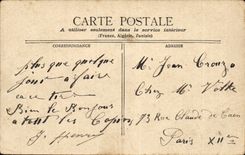 CARTE POSTALE
A utiliser seulement dans le service intérieur
(France, Algérie, Tunisie)
CORRESPONDANCE
ADRESSE
plus que quelque
jours à faire
Bien le Bonjour
à tout les Copains
Mr Jean
Chez Mr
73 Rue Claude de Caen
Paris XII